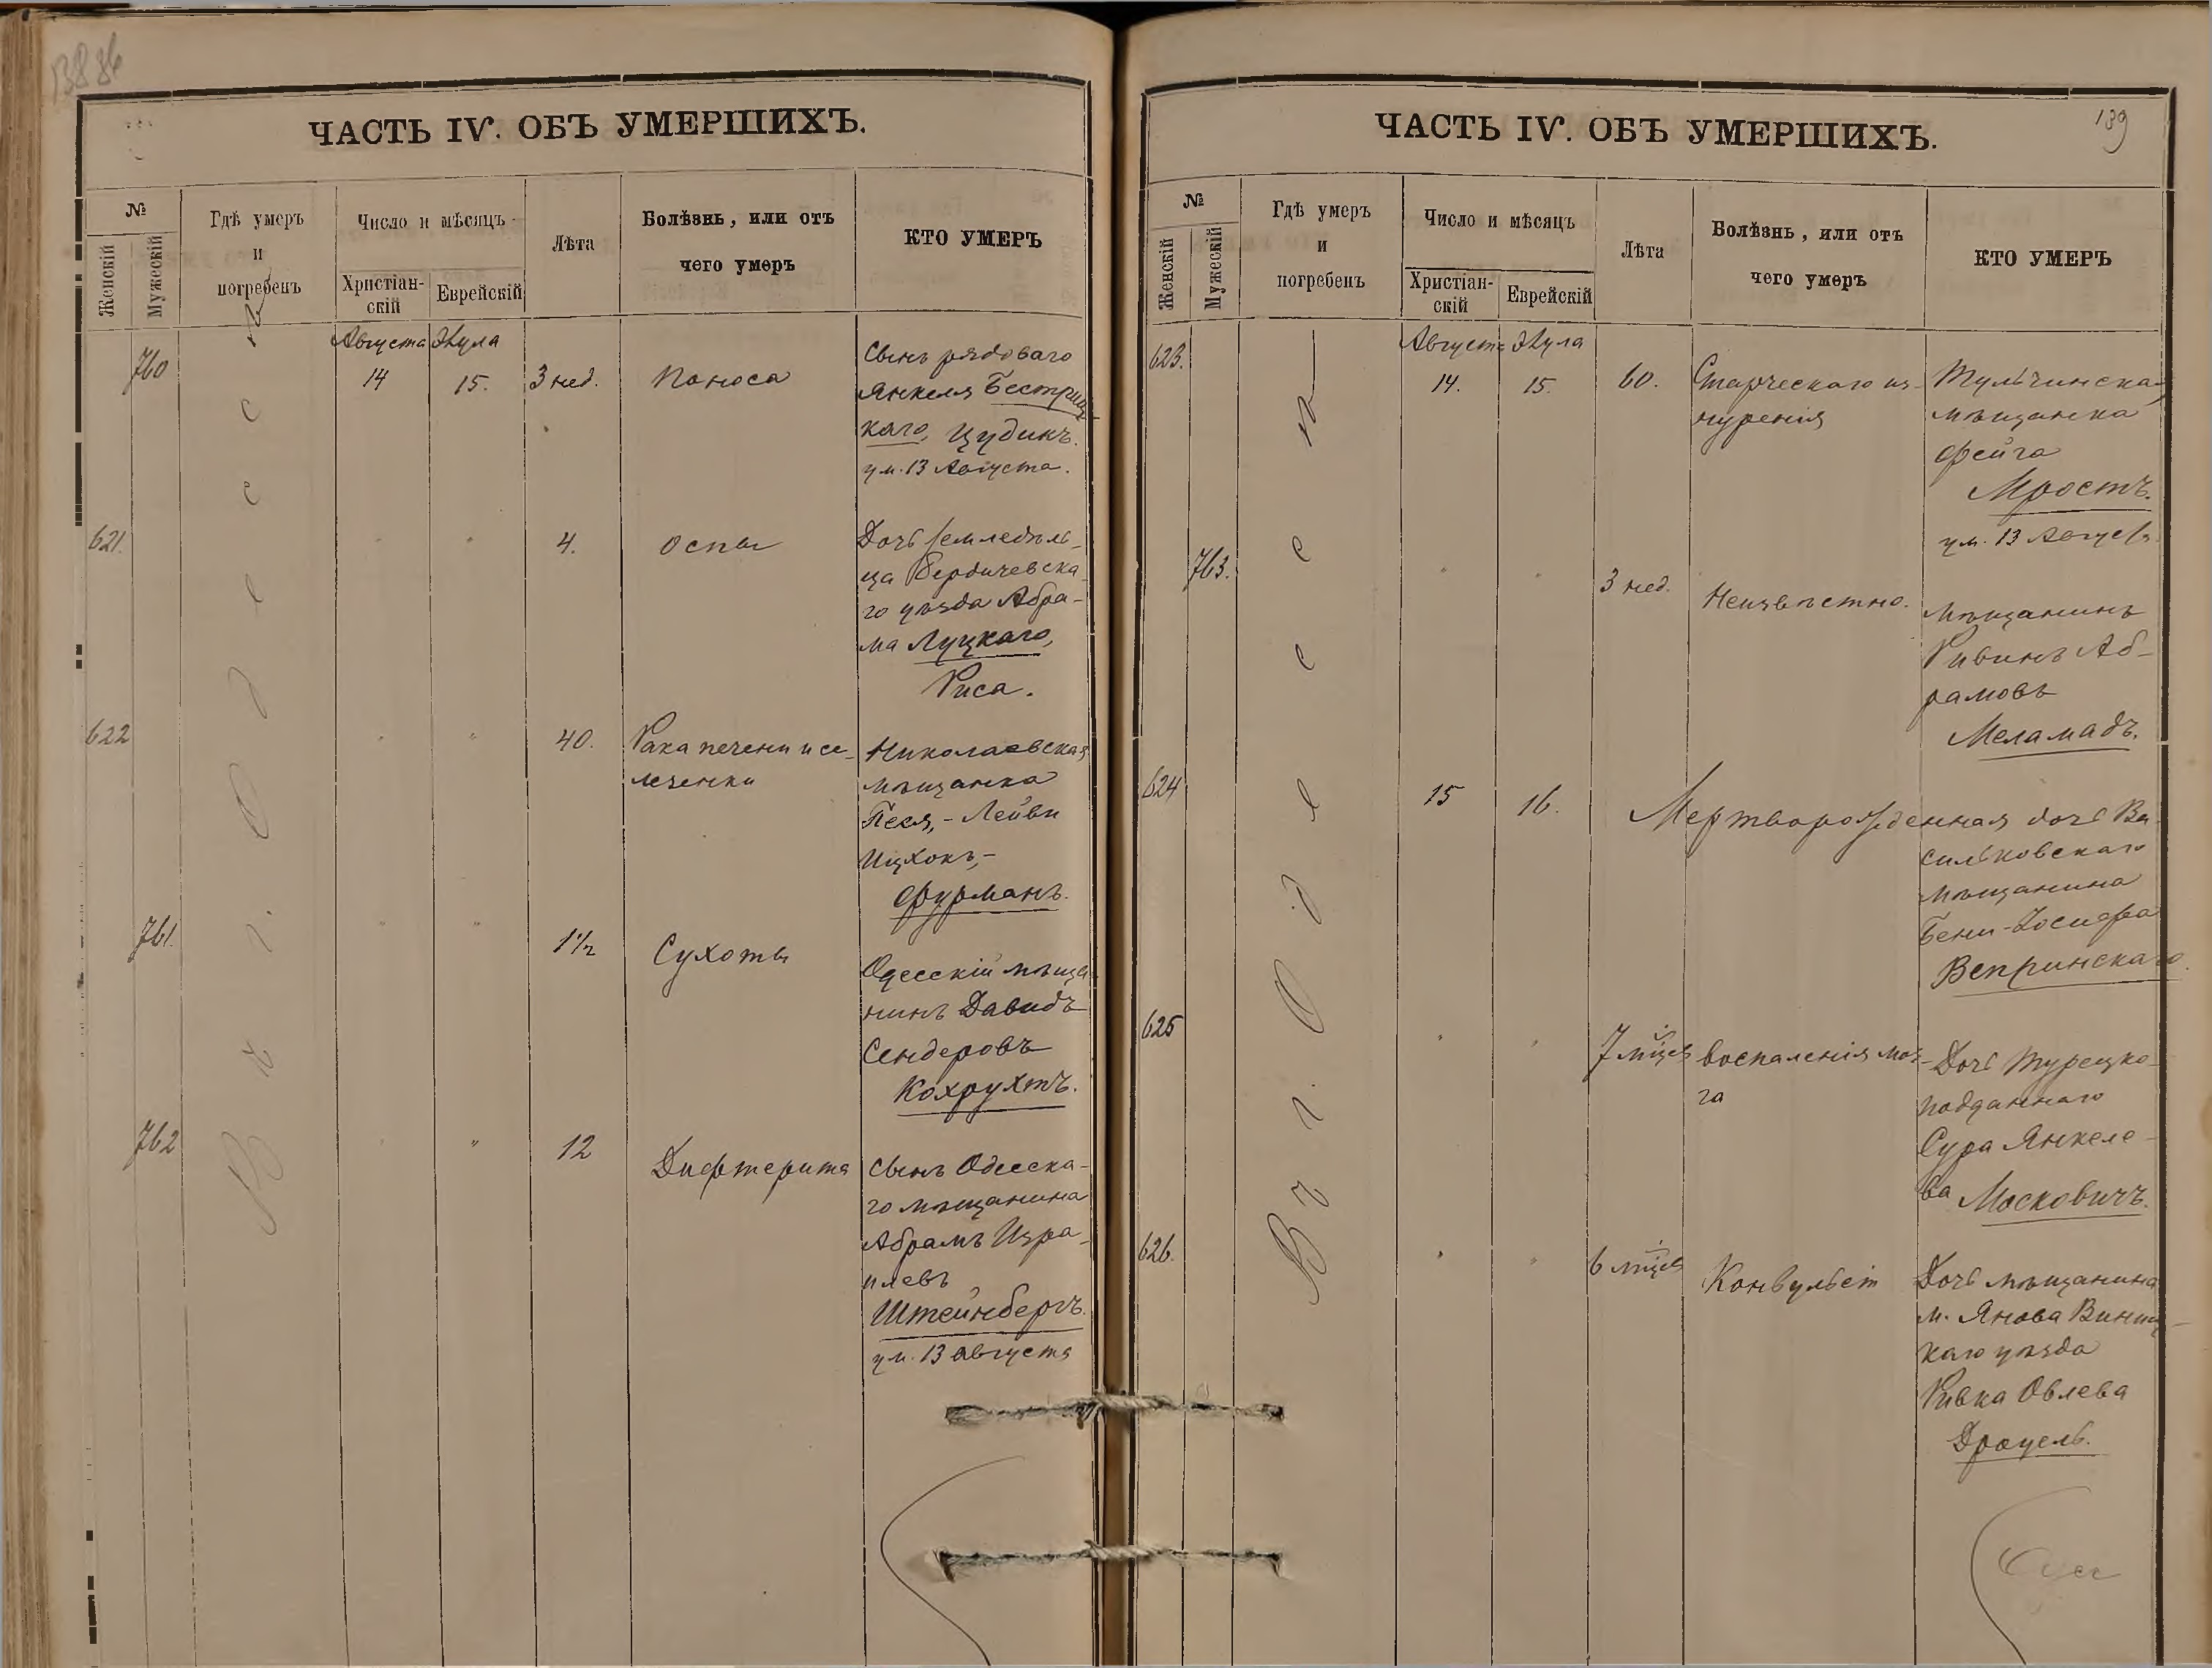 ЧАСТЬ IV. ОБЪ УМЕРШИХЪ.
№
Женскій
Мужескій
Гдѣ умеръ
и
погребенъ
Число и мѣсяцъ
Христіан-
скій
Еврейскій
Лѣта
Болѣзнь, или отъ
чего умеръ
КТО УМЕРЪ
В ъ г. О д е с с ѣ
Августа Элула
760
14
15.
3 нед.
Поноса
Сынъ рядоваго
Янкеля
каго, Цудикъ.
ум. 13 Августа.
621.
"
"
4.
Оспы
Дочь земледѣль-
ца Бердичевска
го уѣзда Абра-
ма Луцкаго,
Риса.
622
"
"
40.
Рака печени и се-
лезенки
Николаевская
мѣщанка
Песя,- Лейви
Ицхокъ,-
Фурманъ.
761.
"
"
1½
Сухоты
Одесскій мѣща
нинъ Давидъ
Сендеровъ
Кохрухтъ.
762
"
"
12
Дифтерита
Сынъ Одесска-
го мѣщанина
Абрамъ Изра-
илевъ
Штейнбергъ.
ум. 13 августа
ЧАСТЬ IV. ОБЪ УМЕРШИХЪ.
139
№
Женскій
Мужескій
Гдѣ умеръ
и
погребенъ
Число и мѣсяцъ
Христіан-
скій
Еврейскій
Лѣта
Болѣзнь, или отъ
чего умеръ
КТО УМЕРЪ
В ъ г. О д е с с ѣ
Августа Элула
623.
14.
15.
60.
Старческаго из-
нуренія
Тульчинская
мѣщанка
Фейга
Мростъ.
ум. 13 Августа
763.
"
"
3 нед.
Неизвѣстно.
мѣщанинъ
Рививъ Аб-
рамовъ
Меламадъ.
624
15
16.
Мертворожденная дочь Ва
сильковскаго
мѣщанина
Бени-Іосифа
Вепринскаго.
625
"
"
7 мѣцевъ
воспаленія моз-
га
Дочь Турецко-
подданнаго
Сура Янкеле-
ва Московичъ.
626.
"
"
6 мѣцевъ
Конвульсіи
Дочь мѣщанина
м. Янова Винниц-
каго уѣзда
Ривка Овлева
Драцель.